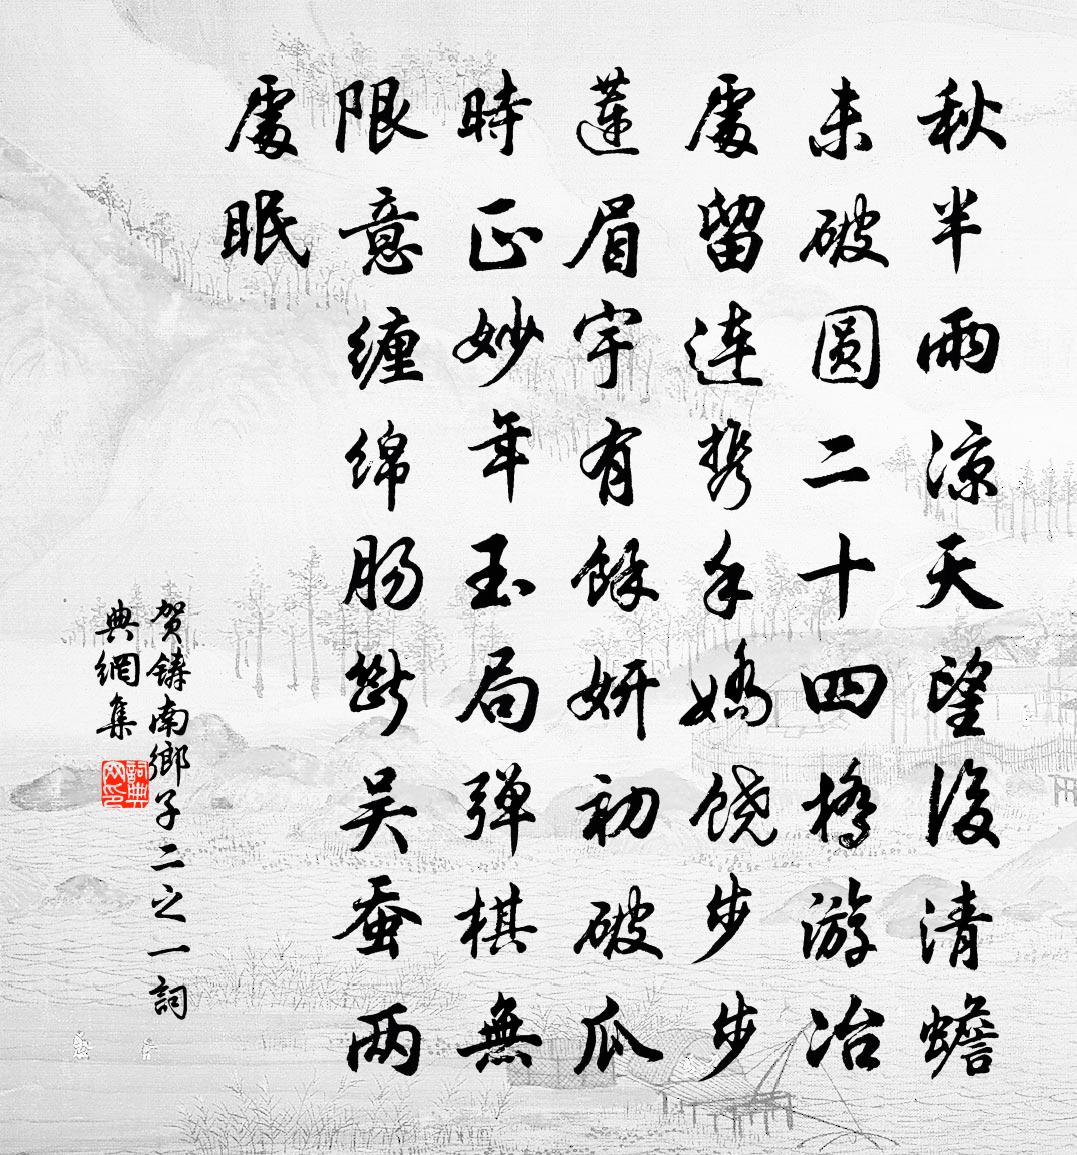 秋半雨涼天望後清蟾
未破圆二十四橋游冶
處留連携手嬌饶步步
蓮眉宇有餘妍初破瓜
時正妙年玉局弹棋無
限意缠绵肠斷吴蚕两
處眠
贺鑄南鄉子二之一詞
典網集
詞典网印